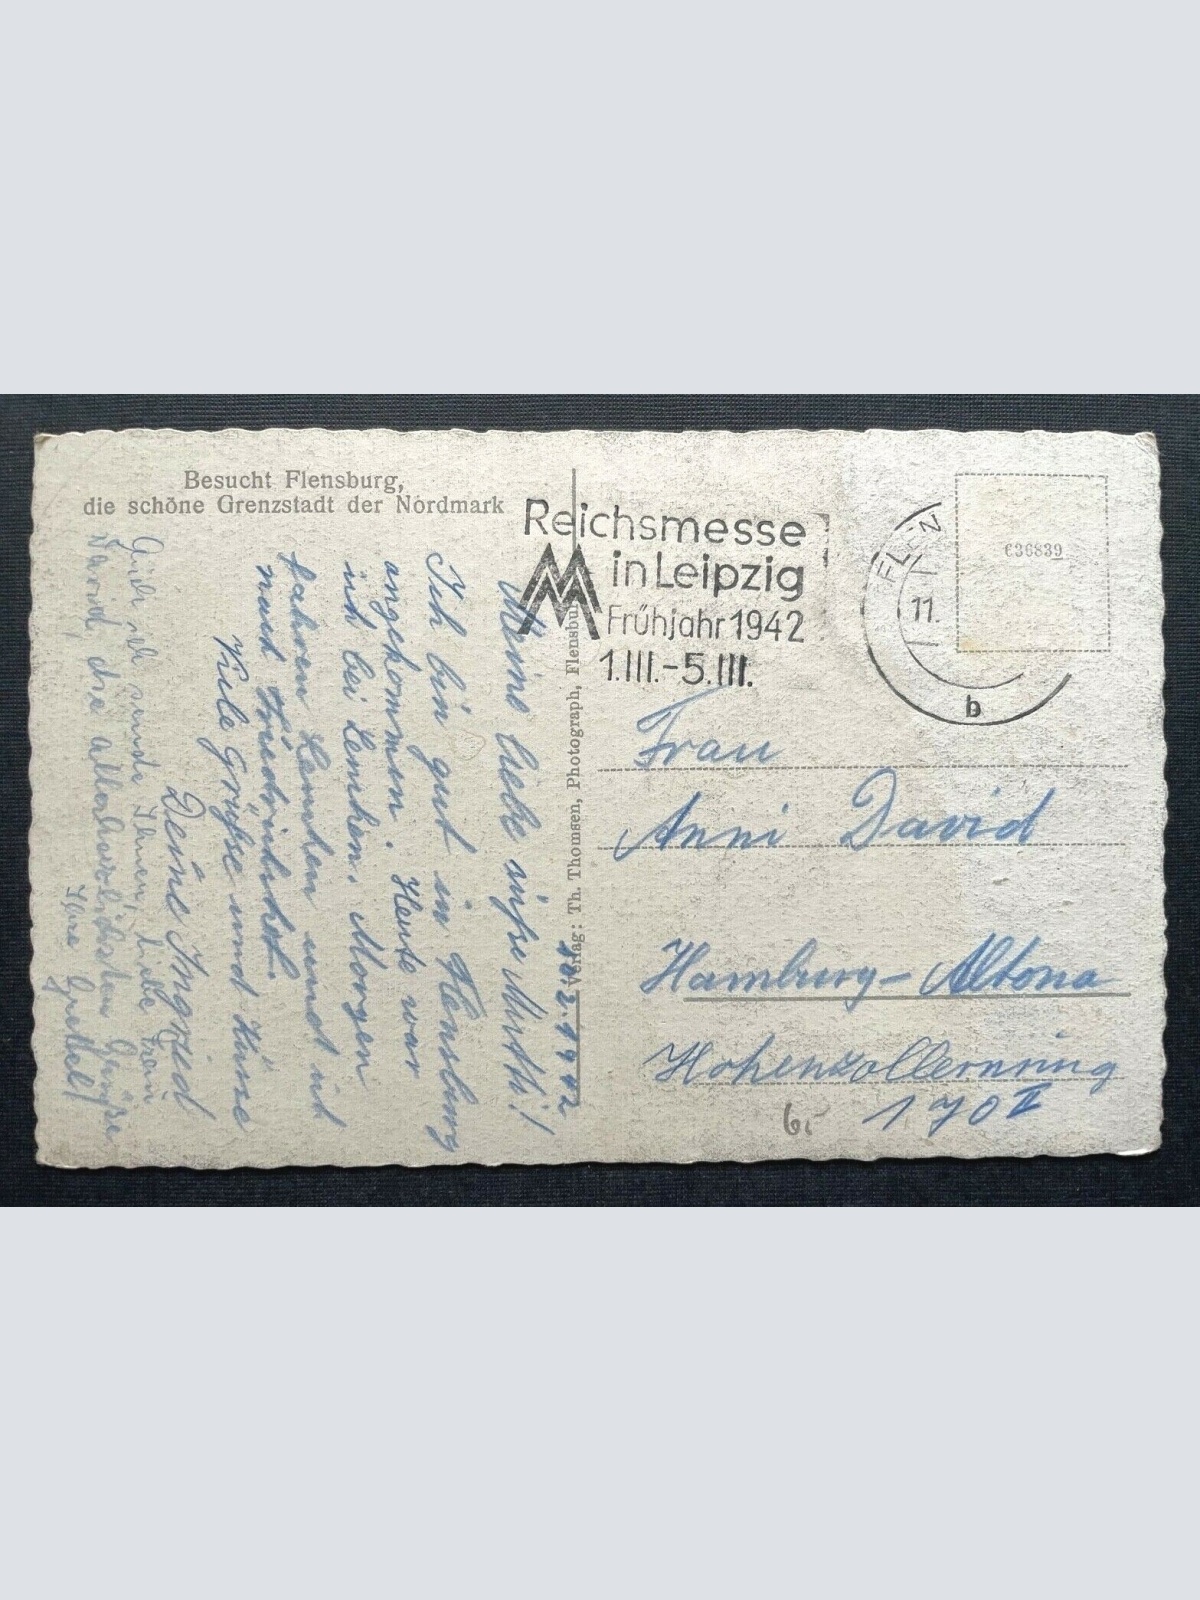 Besucht Flensburg,
die schöne Grenzstadt der Nordmark
Reichsmesse
in Leipzig
Frühjahr 1942
1.III.-5.III.
FLEN
11.
b
€36839
Verlag: Th. Thomsen, Photograph, Flensburg
10.2.1942
Meine liebe süße Mutti!
Ich bin gut in Flensburg
angekommen. Heute war
ich bei Lenchen. Morgen
fahren Lenchen und ich
nach Friedrichshof.
Viele Grüße und Küsse
Deine Ingried
Auch ich sende Ihnen, liebe Frau
David, die allerherzlichsten Grüße
Ihre Gretel
Frau
Anni David
Hamburg-Altona
Hohenzollernring
170 II
6.-